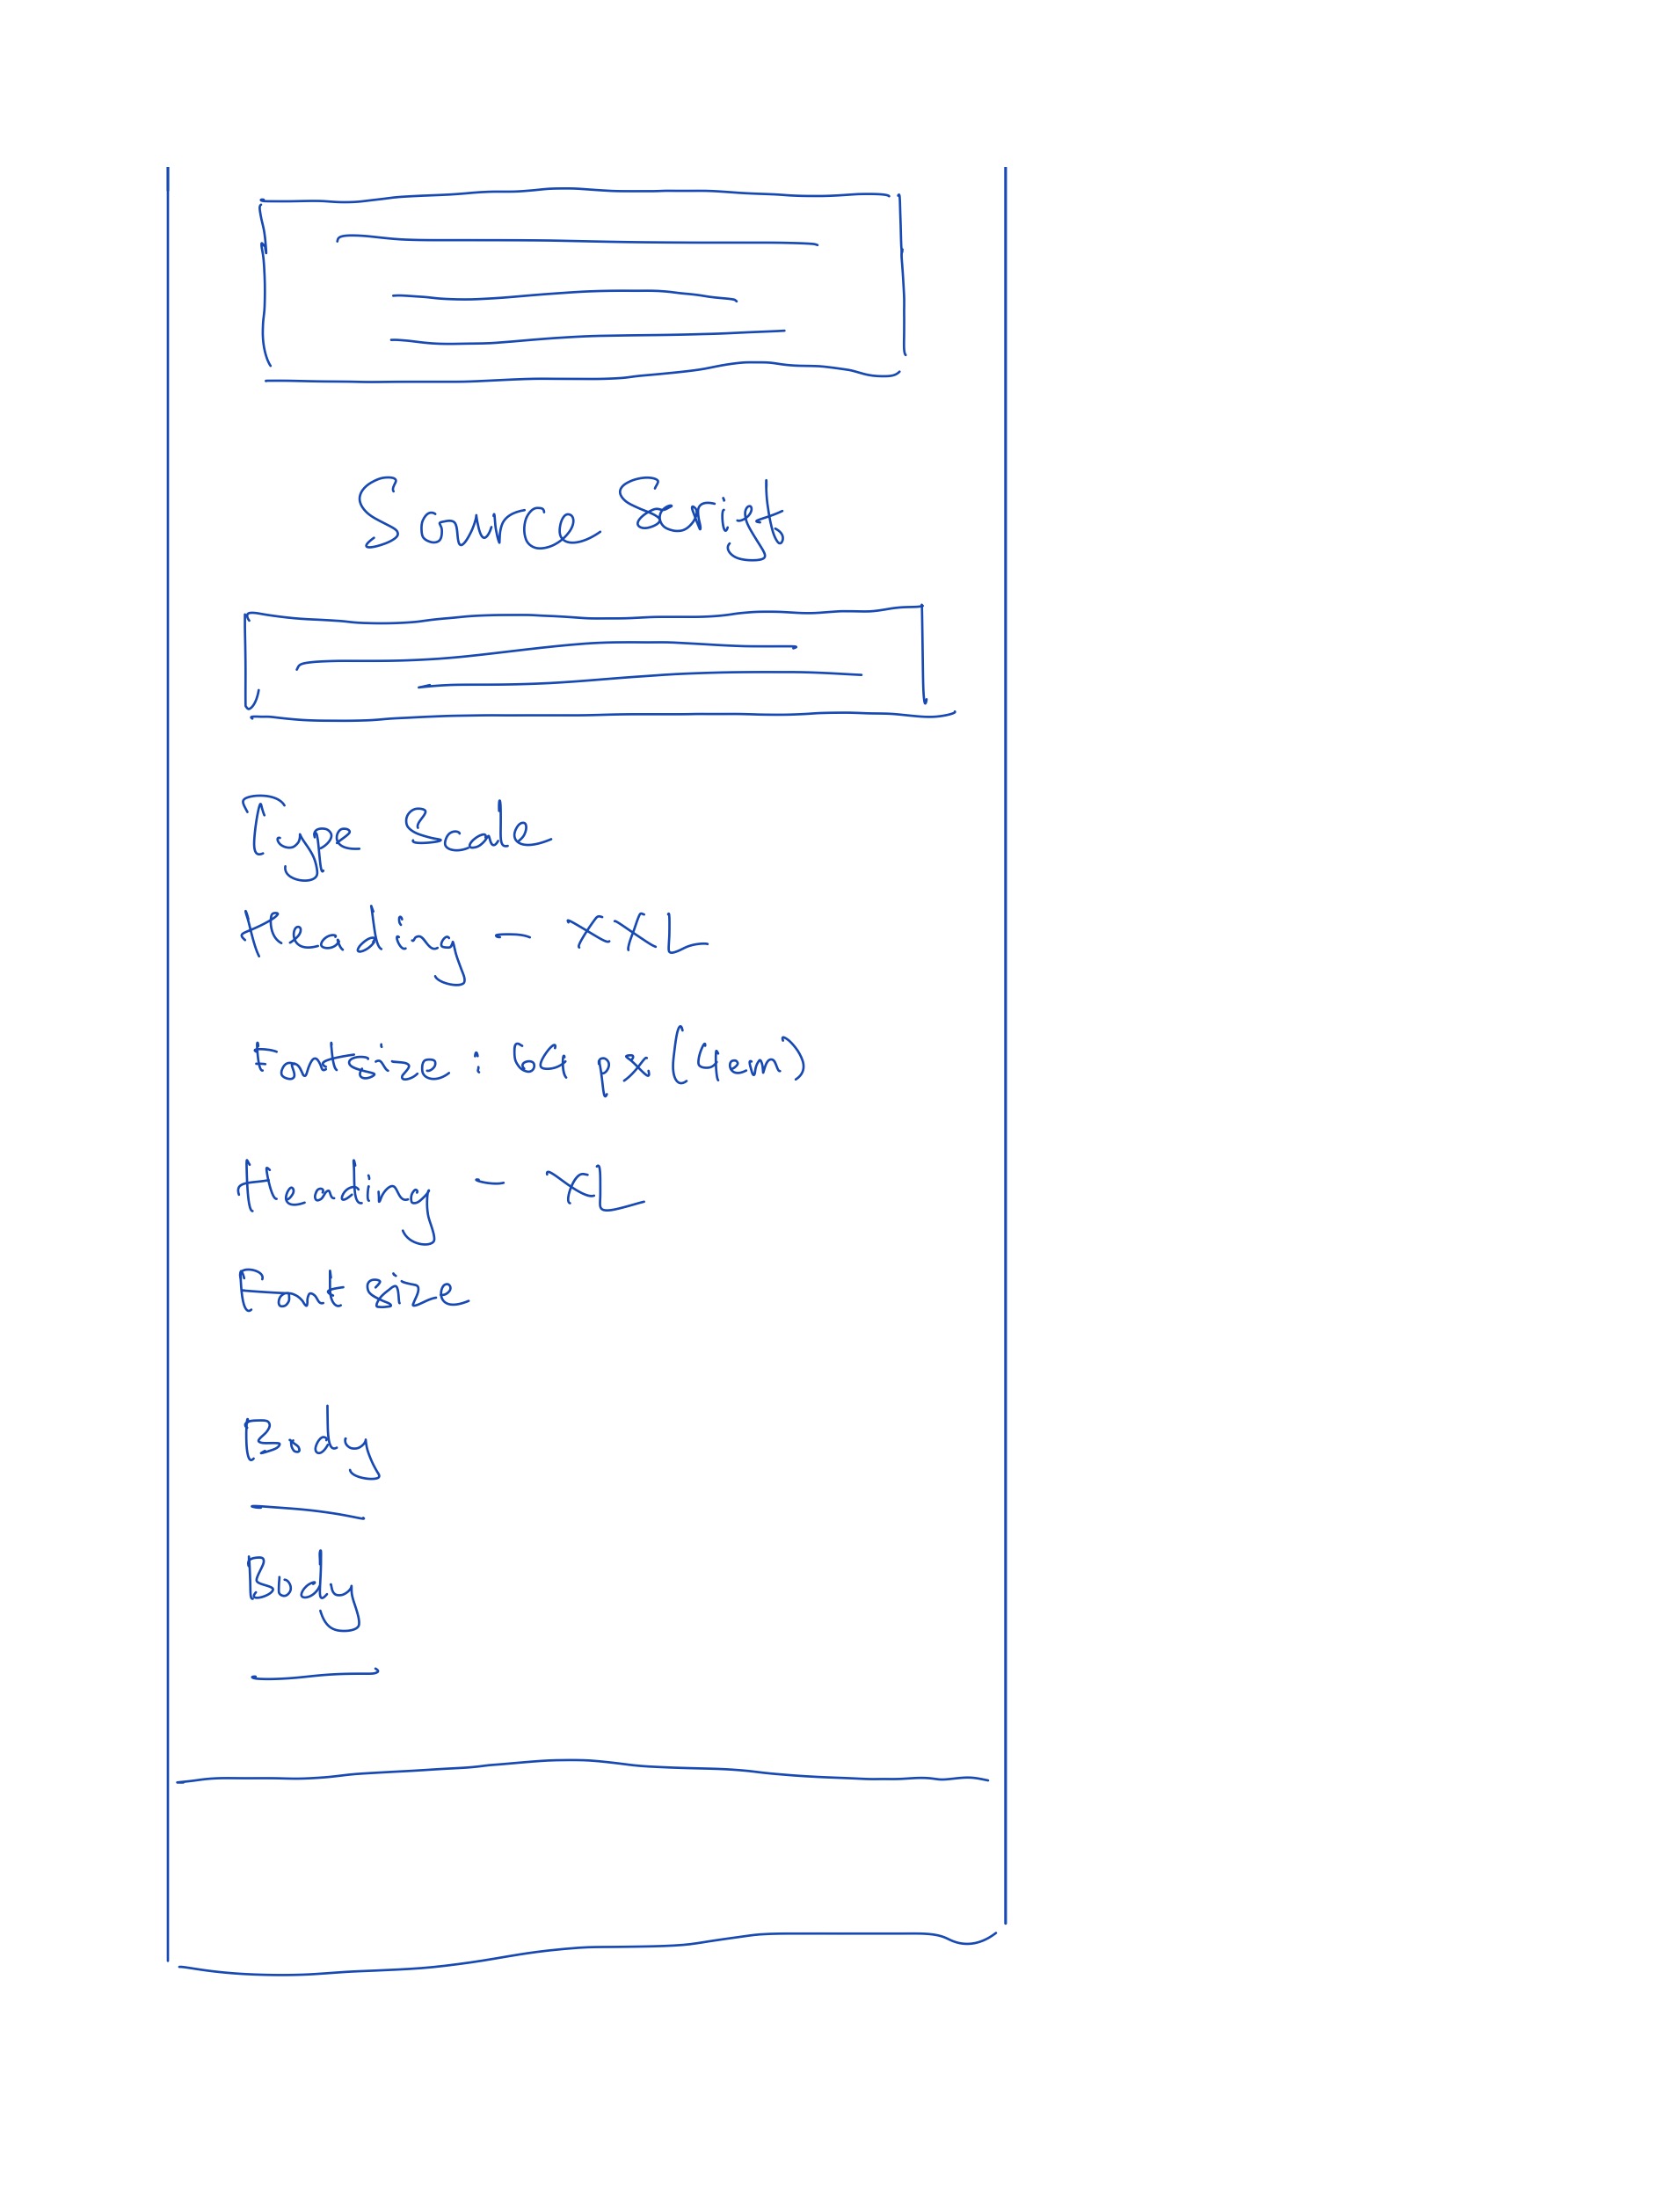 Source Serif
Type Scale
Heading - XXL
Fontsize : 64 px (4em)
Heading - XL
Font size
Body
Body